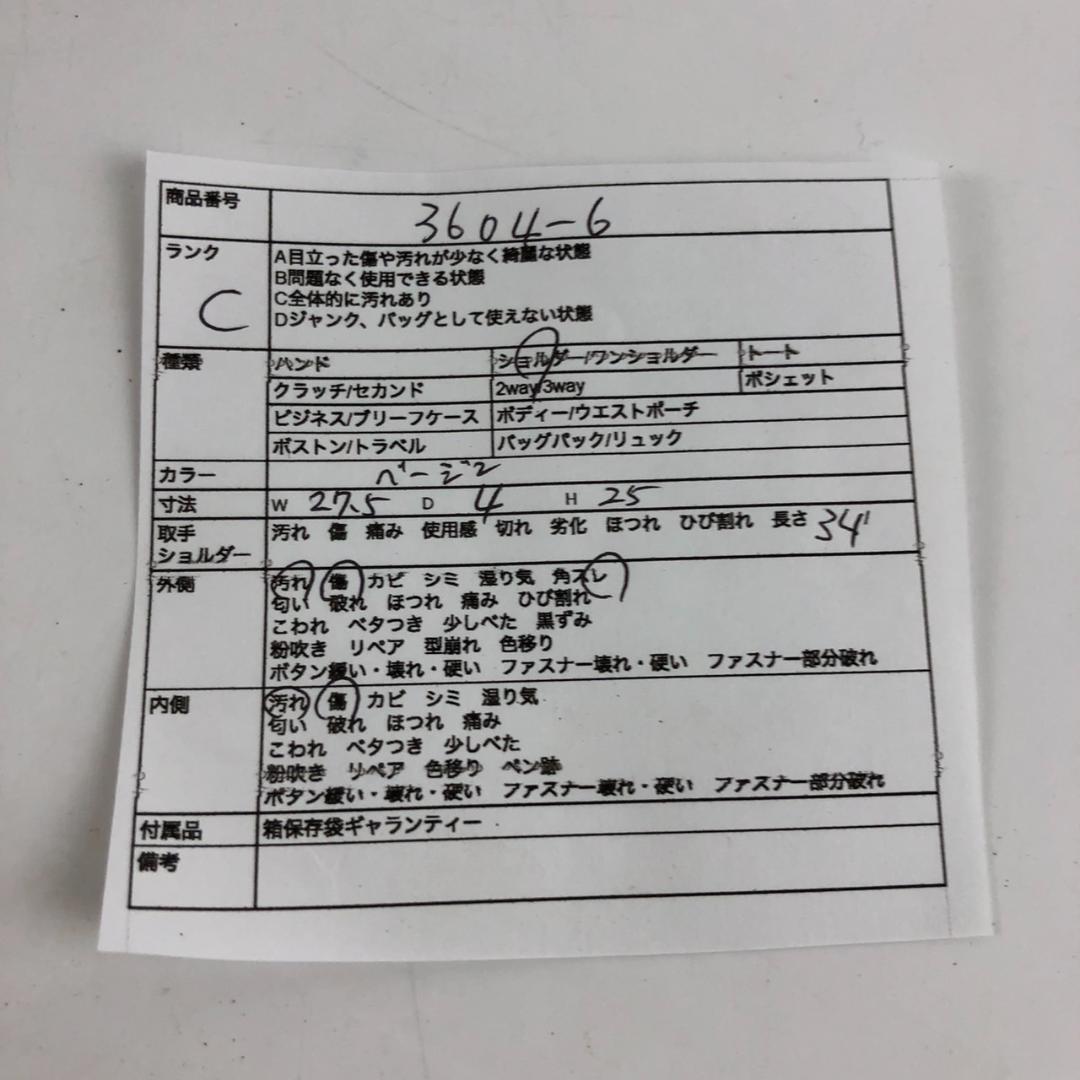 商品番号 3604-6
ランク C
A目立った傷や汚れが少なく綺麗な状態
B問題なく使用できる状態
C全体的に汚れあり
Dジャンク、バッグとして使えない状態
種類 ハンド ショルダー/ワンショルダー トート
クラッチ/セカンド 2way/3way ポシェット
ビジネス/ブリーフケース ボディー/ウエストポーチ
ボストン/トラベル バッグパック/リュック
カラー ベージュ
寸法 W 27.5 D 4 H 25
取手 汚れ 傷 痛み 使用感 切れ 劣化 ほつれ ひび割れ 長さ 34
ショルダー
外側 汚れ 傷 カビ シミ 湿り気 角スレ
匂い 破れ ほつれ 痛み ひび割れ
こわれ ベタつき 少しべた 黒ずみ
粉吹き リペア 型崩れ 色移り
ボタン緩い・壊れ・硬い ファスナー壊れ・硬い ファスナー部分破れ
内側 汚れ 傷 カビ シミ 湿り気
匂い 破れ ほつれ 痛み
こわれ ベタつき 少しべた
粉吹き リペア 色移り ペン跡
ボタン緩い・壊れ・硬い ファスナー壊れ・硬い ファスナー部分破れ
付属品 箱保存袋ギャランティー
備考